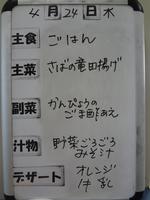 4月24日木
主食 ごはん
主菜 さばの竜田揚げ
副菜 かんぴょうの
ごま酢あえ
汁物 野菜ごろごろ
みそ汁
デザート オレンジ
牛乳